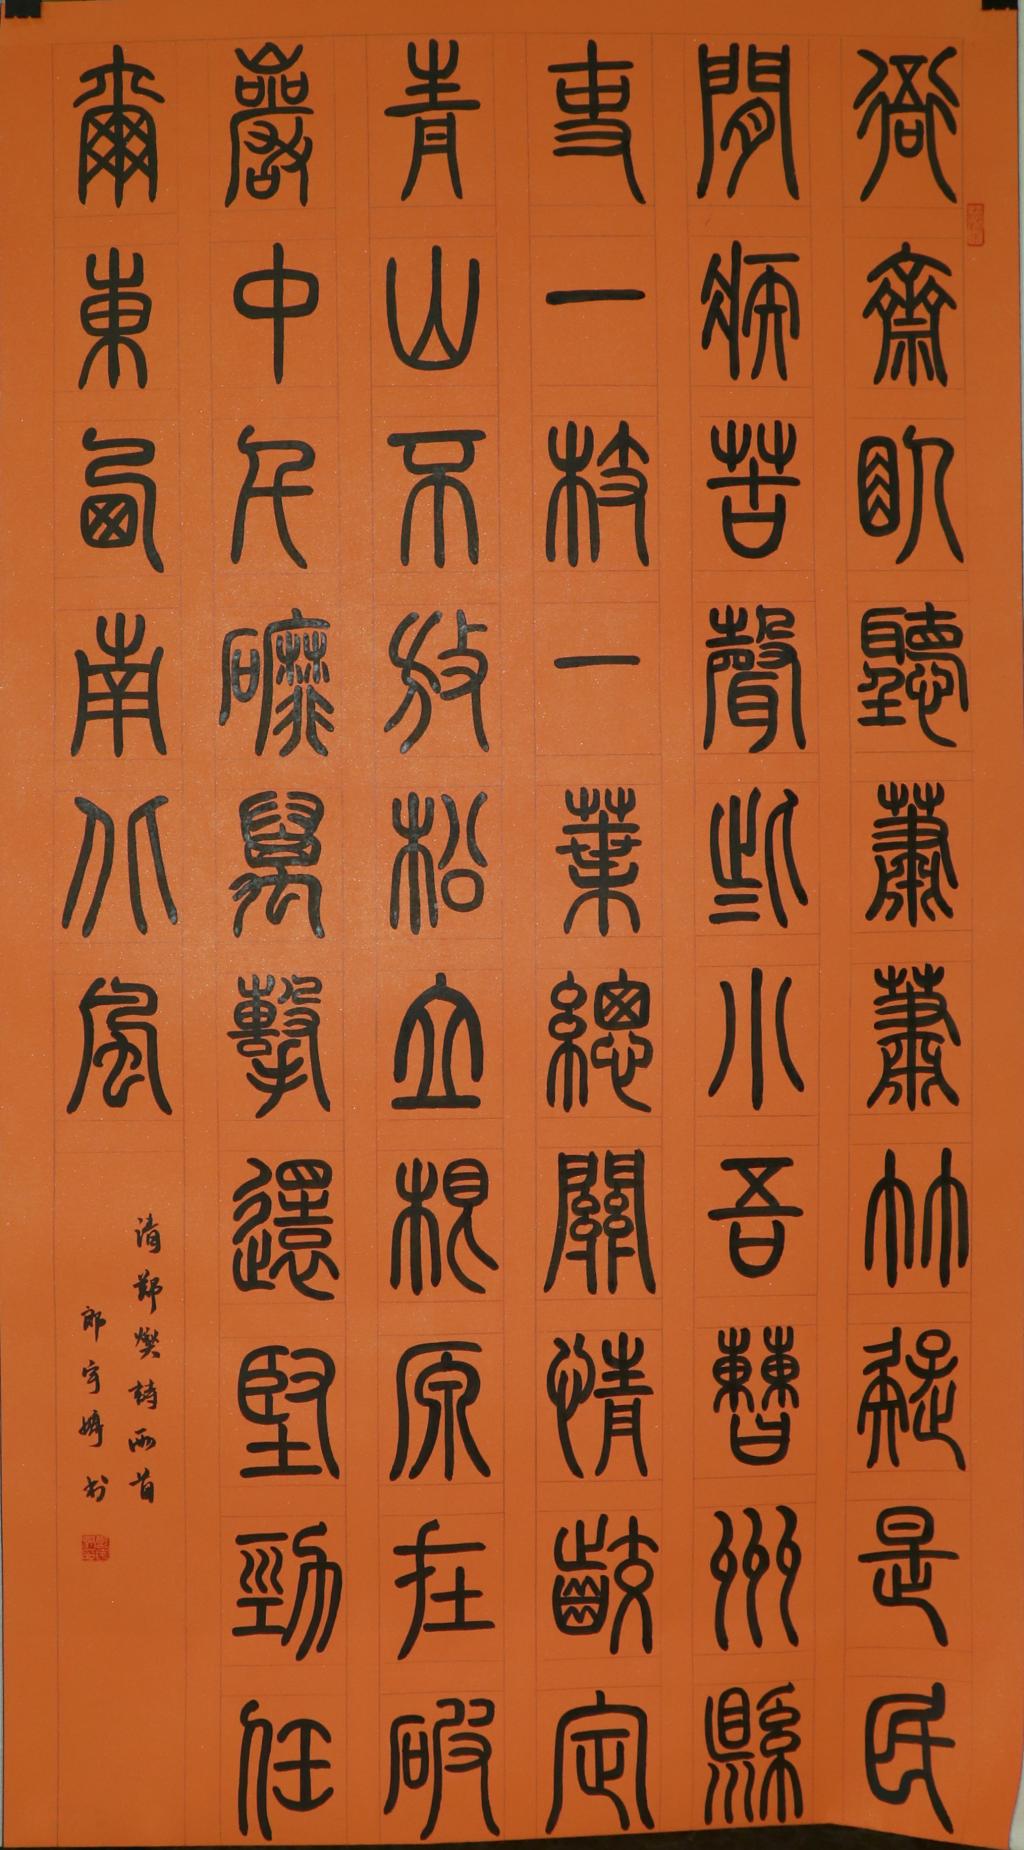 衙齋臥聽蕭蕭竹疑是民
閒疾苦聲些小吾曹州縣
吏一枝一葉總關情齩定
青山不放松立根原在破
巖中千磨萬擊還堅勁任
爾東西南北風
清鄭燮詩兩首
郎宇婷书